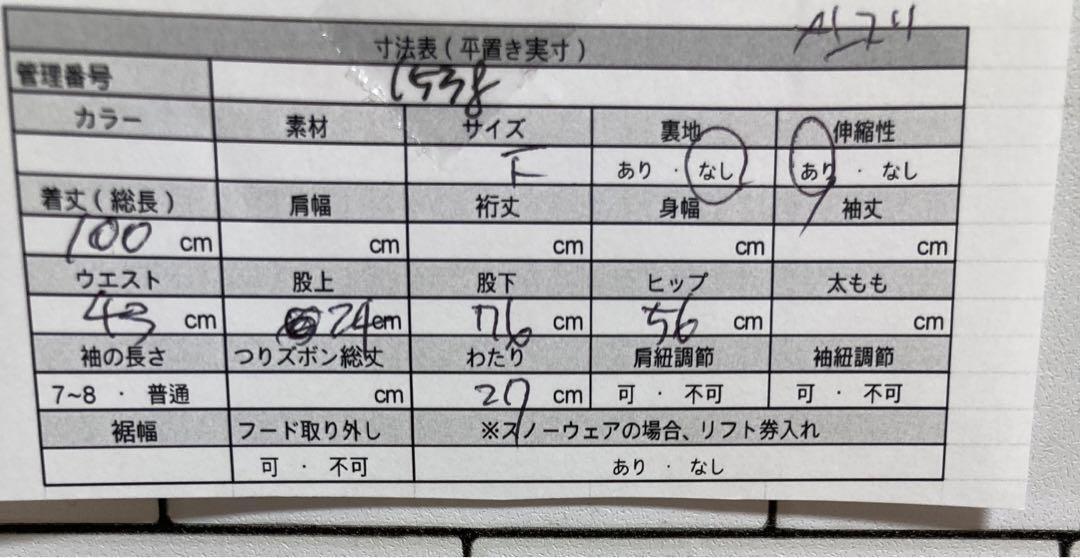 寸法表(平置き実寸)
管理番号 1538
カラー 素材 サイズ 裏地 伸縮性
F あり ・ なし あり ・ なし
着丈(総長) 肩幅 裄丈 身幅 袖丈
100 cm cm cm cm cm
ウエスト 股上 股下 ヒップ 太もも
43 cm 24 cm 76 cm 56 cm cm
袖の長さ つりズボン総丈 わたり 肩紐調節 袖紐調節
7~8 ・ 普通 cm 27 cm 可 ・ 不可 可 ・ 不可
裾幅 フード取り外し ※スノーウェアの場合、リフト券入れ
可 ・ 不可 あり ・ なし